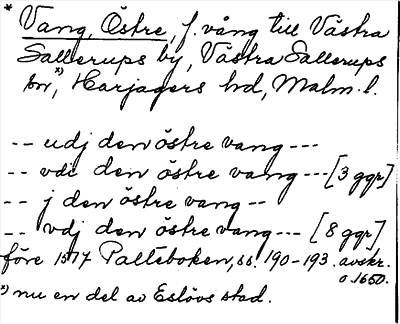 * Vang, Östre, f. vång till Västra
Sallerups by, Västra Sallerups
sn,*) Harjagers hd, Malm. l.
-- udj den östre vang ---
-- vdi den östre vang --- [3 ggr]
-- j den östre vang --
-- vdj den östre vang --- [8 ggr]
före 1577 Palteboken, ss. 190-193. avskr.
o. 1650.
*) nu en del av Eslövs stad.